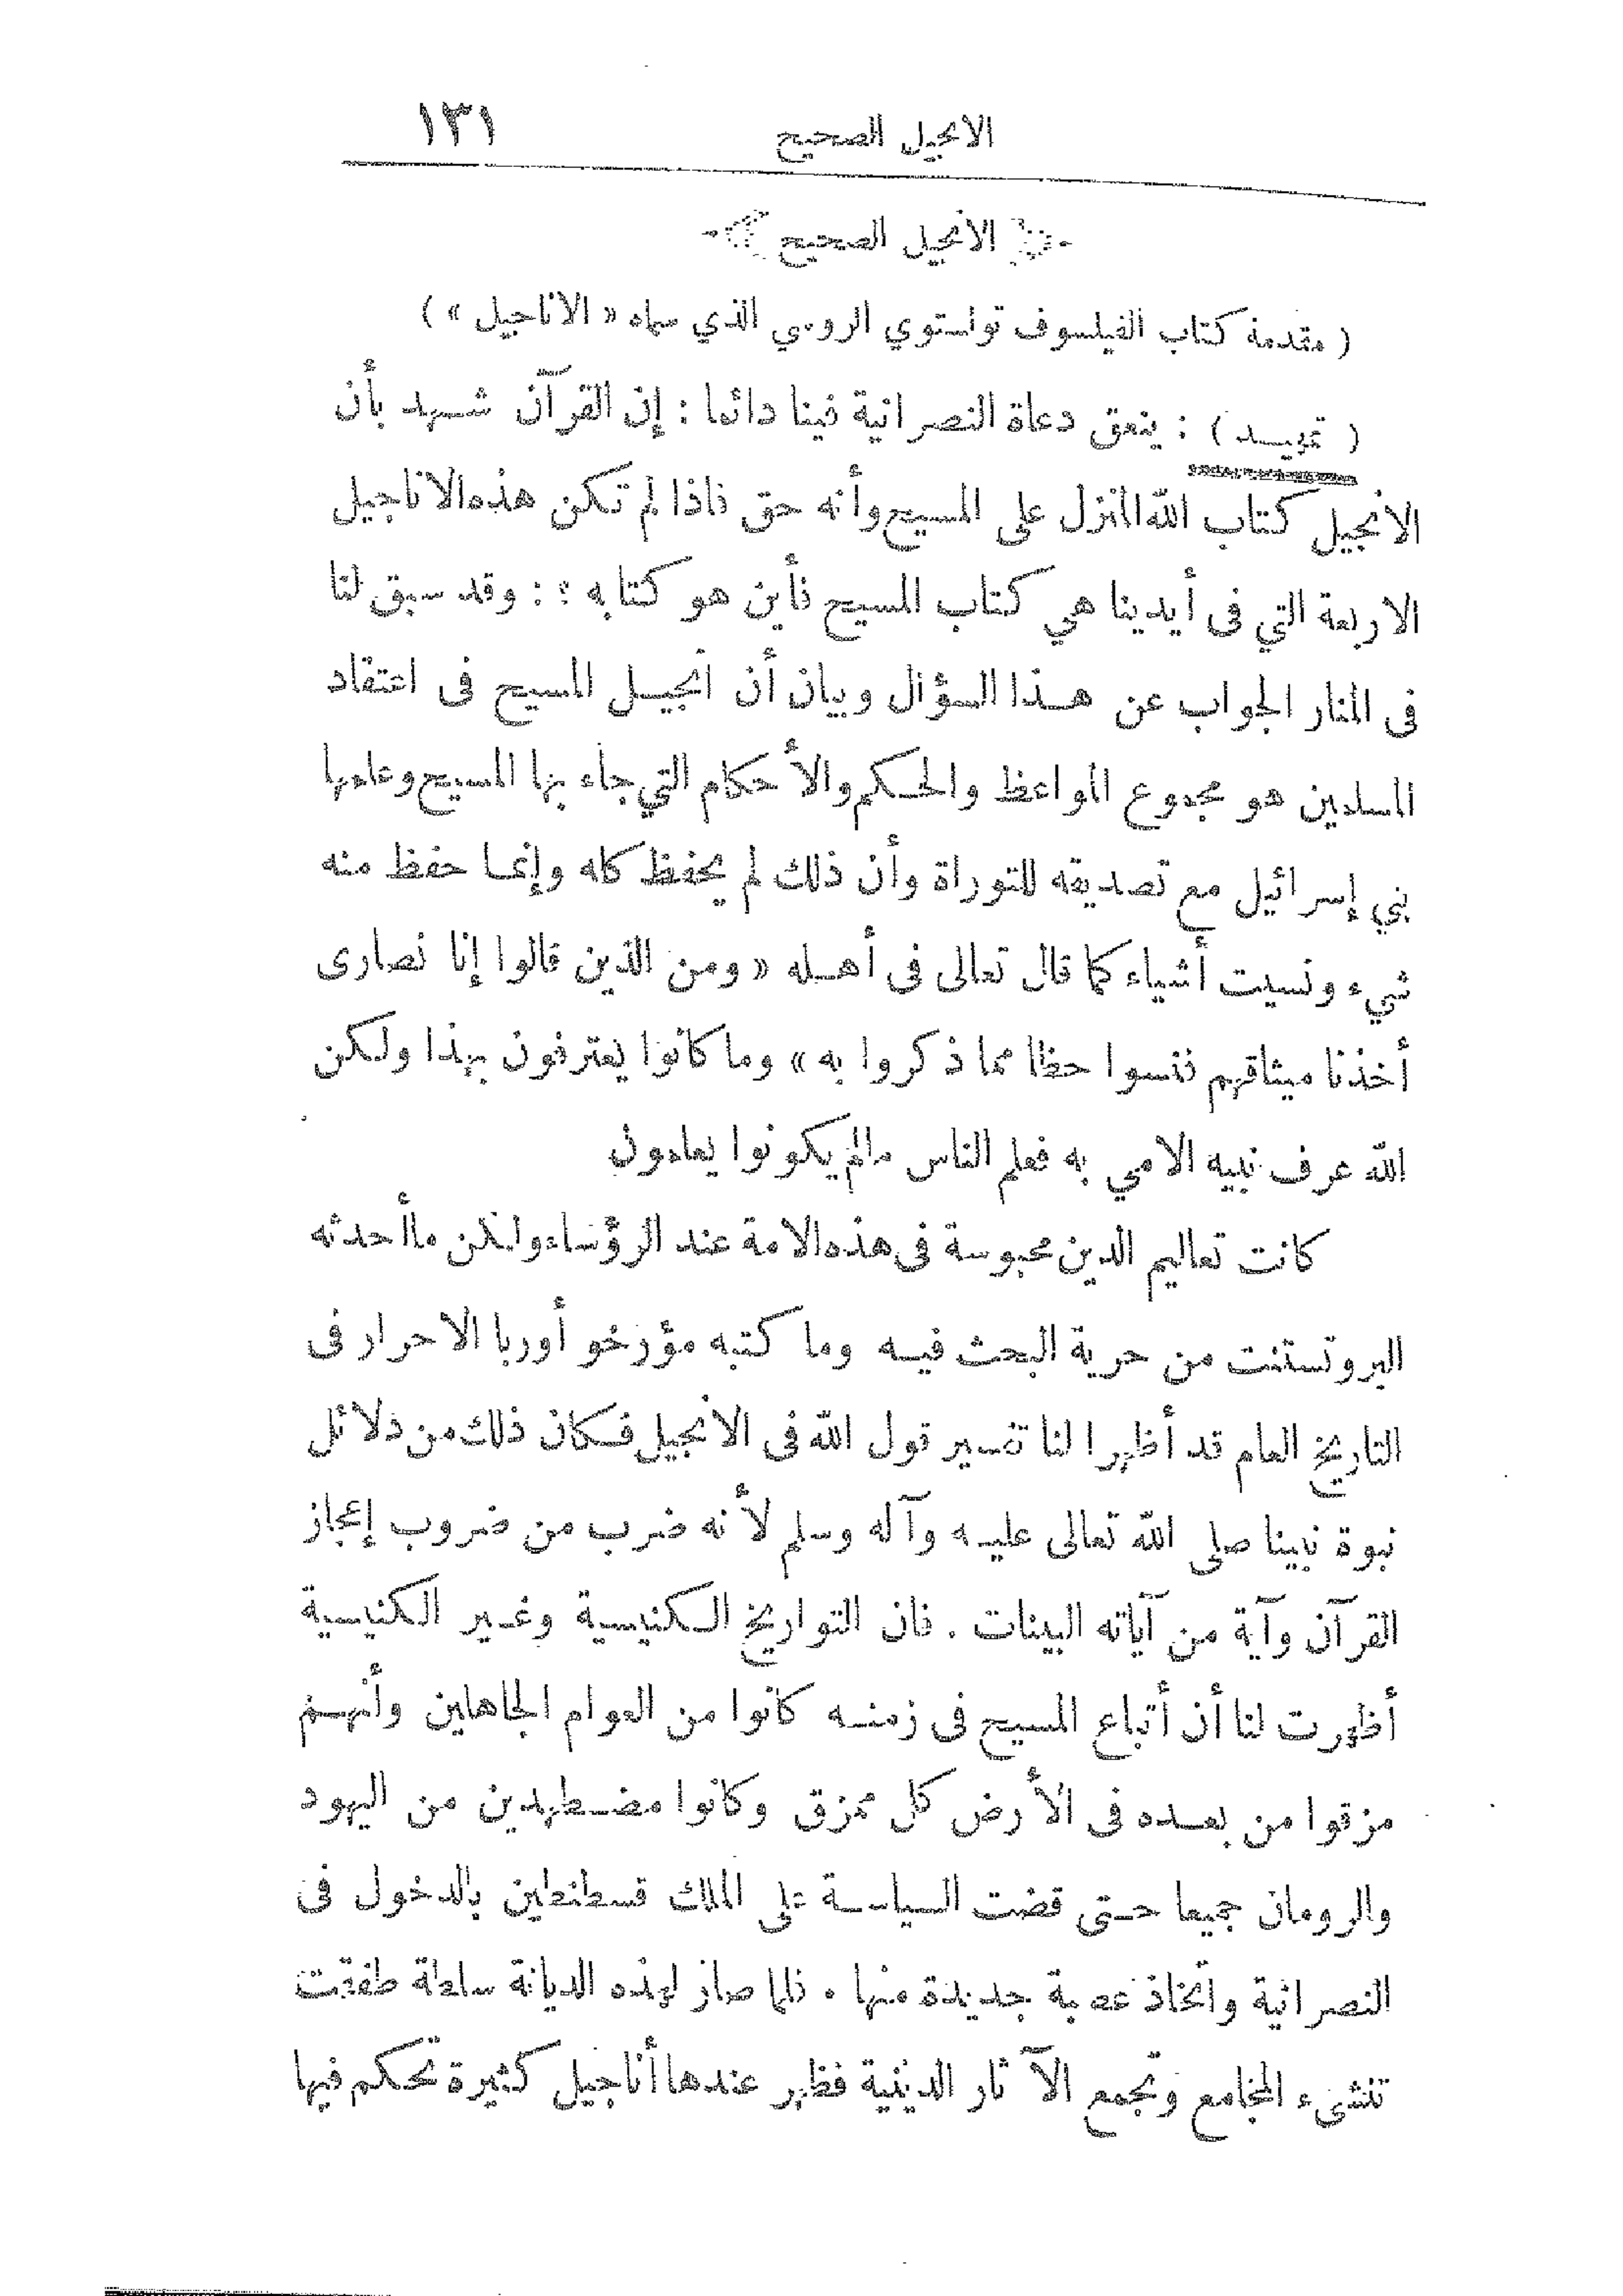 الانجيل الصحيح ١٣١
الانجيل الصحيح
( مقدمة كتاب الفيلسوف تولستوي الروسي الذي سماه « الاناجيل » )
( تمهيد ) : ينعق دعاة النصرانية فينا دائما : إن القرآن شهد بأن
الانجيل كتاب الله المنزل على المسيح وأنه حق فاذا لم تكن هذه الاناجيل
الاربعة التي فى أيدينا هي كتاب المسيح فأين هو كتابه ؟ : وقد سبق لنا
فى المنار الجواب عن هذا السؤال وبيان أن انجيل المسيح فى اعتقاد
المسلمين هو مجموع المواعظ والحكم والأحكام التي جاء بها المسيح وعلمها
بني إسرائيل مع تصديقه للتوراة وأن ذلك لم يحفظ كله وإنما حفظ منه
شيء ونسيت أشياء كما قال تعالى فى أهله « ومن الذين قالوا إنا نصارى
أخذنا ميثاقهم فنسوا حظا مما ذكروا به » وما كانوا يعترفون بهذا ولكن
الله عرف نبيه الامي به فعلم الناس مالم يكونوا يعلمون
كانت تعاليم الدين محبوسة فى هذه الامة عند الرؤساء ولكن ما أحدثه
البروتستنت من حرية البحث فيه وما كتبه مؤرخو أوربا الاحرار فى
التاريخ العام قد أظهرا لنا تفسير قول الله فى الانجيل فكان ذلك من دلائل
نبوة نبينا صلى الله تعالى عليه وآله وسلم لأنه ضرب من ضروب إعجاز
القرآن وآية من آياته البينات . فان التواريخ الكنيسية وغير الكنيسية
أظهرت لنا أن أتباع المسيح فى زمنه كانوا من العوام الجاهلين وأنهم
مزقوا من بعده فى الأرض كل ممزق وكانوا مضطهدين من اليهود
والرومان جميعا حتى قضت السياسة على الملك قسطنطين بالدخول فى
النصرانية واتخاذ عصبة جديدة منها . فلما صار لهذه الديانة سلطة طفقت
تنشىء المجامع وتجمع الآثار الدينية فظهر عندها أناجيل كثيرة تحكم فيها